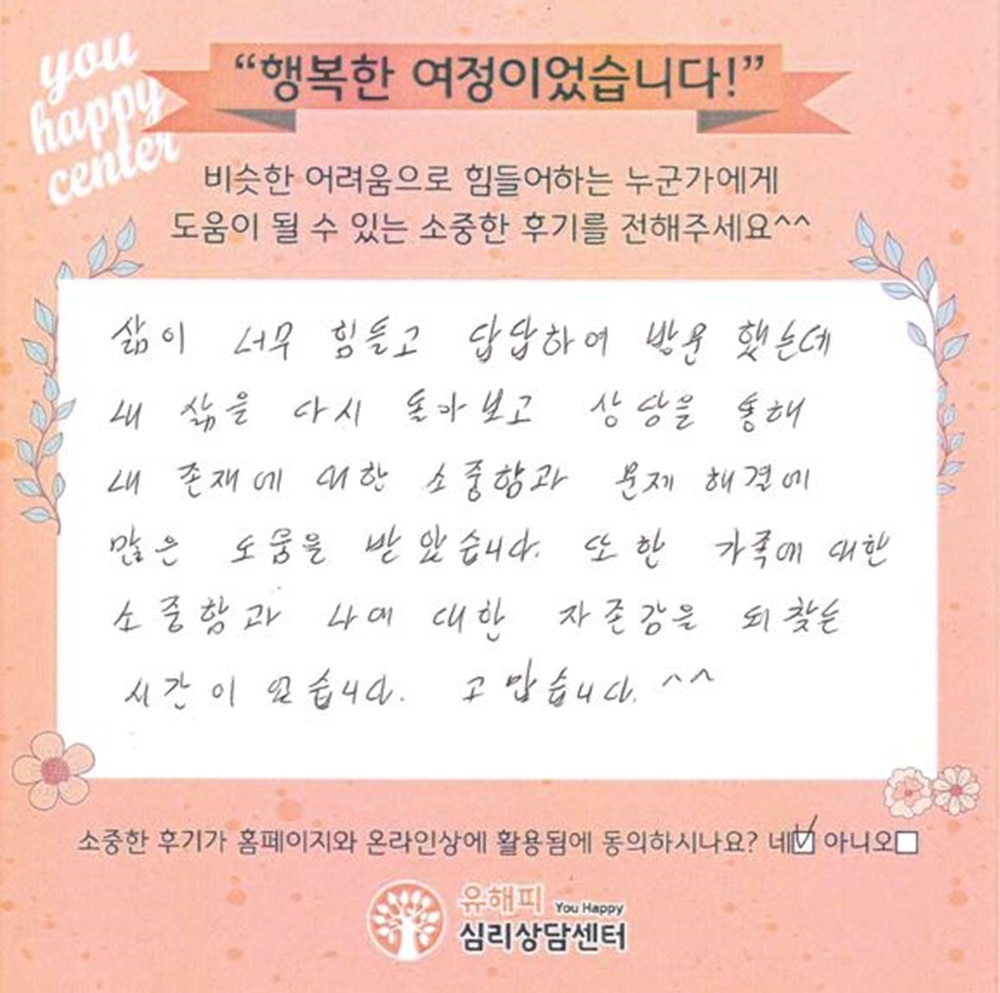 you
happy
center
“행복한 여정이었습니다!”
비슷한 어려움으로 힘들어하는 누군가에게
도움이 될 수 있는 소중한 후기를 전해주세요^^
삶이 너무 힘들고 답답하여 방문 했는데
내 삶을 다시 돌아보고 상담을 통해
내 존재에 대한 소중함과 문제 해결에
많은 도움을 받았습니다. 또한 가족에 대한
소중함과 나에 대한 자존감을 되찾는
시간이 었습니다. 고맙습니다. ^^
소중한 후기가 홈페이지와 온라인상에 활용됨에 동의하시나요? 네☑ 아니오□
유해피 You Happy
심리상담센터